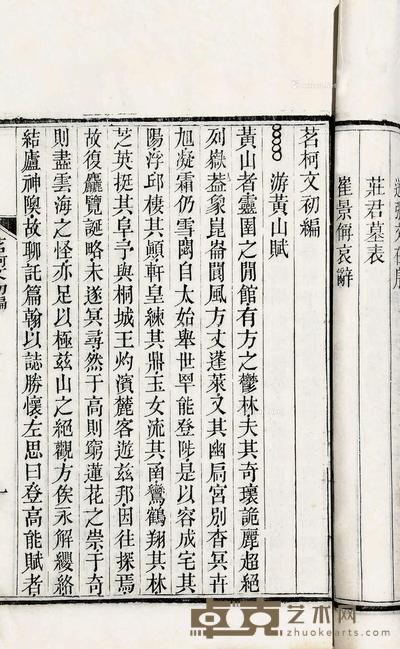 莊君墓表
崔景偁哀辭
茗柯文初編
游黃山賦
黃山者靈圉之閒館有方之鬱林夫其奇瓌詭麗超絕
列嶽葢象崑崙閬風方丈蓬萊又其幽扃宮別杳冥卉
旭凝霜仍雪閡自太始舉世罕能登陟是以容成宅其
陽浮邱棲其顚軒皇練其鼎玉女流其南鸞鶴翔其林
芝英挺其阜予與桐城王灼濱麓客遊茲邦因往探焉
故復麤覽誕略未遂冥尋然于高則窮蓮花之崇于奇
則盡雲海之怪亦足以極茲山之絕觀方俟永解纓絡
結廬神隩故聊託篇翰以誌勝懷左思曰登高能賦者
茗柯文初編
卓克艺术网
www.zhuokearts.com